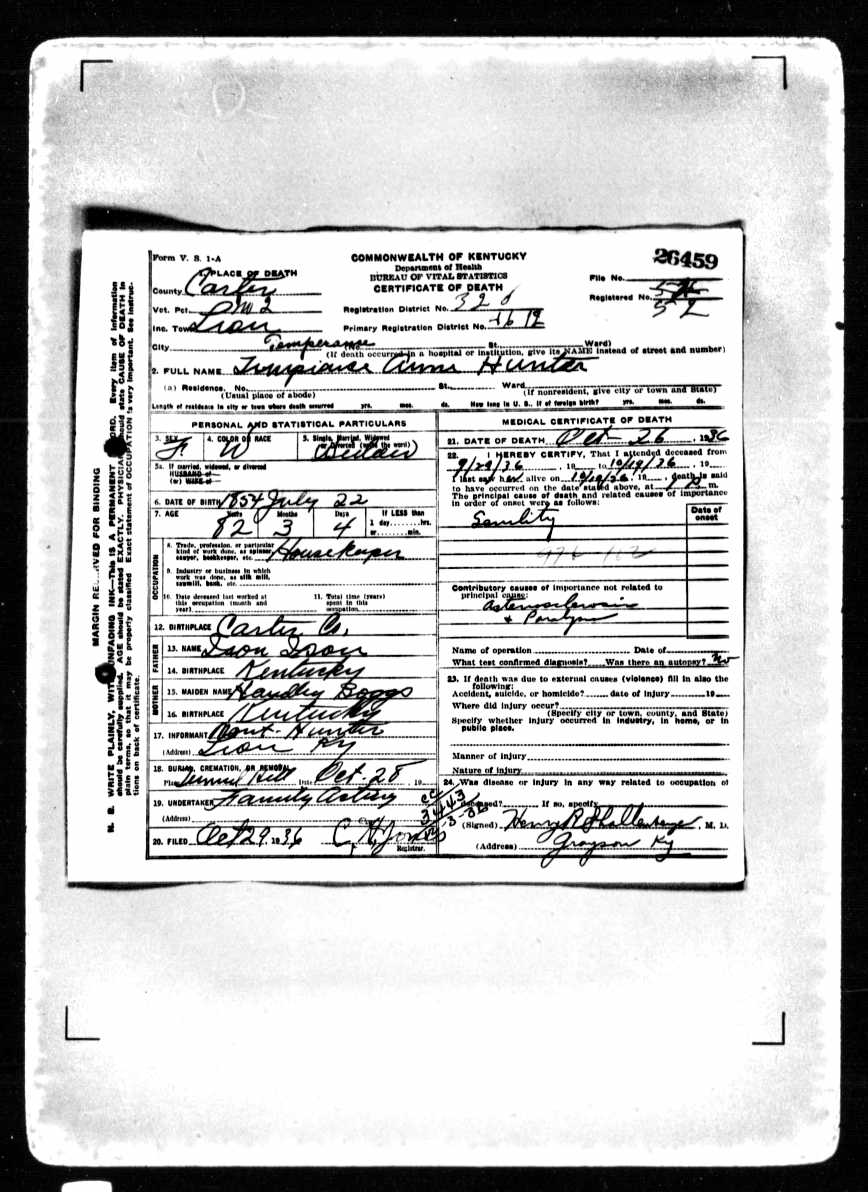 Form V. S. 1-A
COMMONWEALTH OF KENTUCKY
Department of Health
BUREAU OF VITAL STATISTICS
CERTIFICATE OF DEATH
26459
File No.
Registered No. 52
1. PLACE OF DEATH
County Carter
Vot. Pct. No 2
Inc. Town
Registration District No. 320
Primary Registration District No.
City (No. St. Ward)
(If death occurred in a hospital or institution, give its NAME instead of street and number)
Temperance
2. FULL NAME Anna Hunter
(a) Residence. No. St. Ward
(Usual place of abode) (If nonresident, give city or town and State)
Length of residence in city or town where death occurred yrs. mos. ds. How long in U. S., if of foreign birth? yrs. mos. ds.
PERSONAL AND STATISTICAL PARTICULARS
3. SEX F
4. COLOR OR RACE W
5. Single, Married, Widowed or Divorced (write the word)
5a. If married, widowed, or divorced
HUSBAND of
(or) WIFE of
6. DATE OF BIRTH 1854 July 22
7. AGE Years 82 Months 3 Days 4 If LESS than 1 day hrs. or min.
OCCUPATION
8. Trade, profession, or particular kind of work done, as spinner, sawyer, bookkeeper, etc. Housekeeper
9. Industry or business in which work was done, as silk mill, sawmill, bank, etc.
10. Date deceased last worked at this occupation (month and year)
11. Total time (years) spent in this occupation
12. BIRTHPLACE Carter Co.
FATHER
13. NAME
14. BIRTHPLACE Kentucky
MOTHER
15. MAIDEN NAME Boggs
16. BIRTHPLACE Kentucky
17. INFORMANT Hunter
(Address) Ky
18. BURIAL, CREMATION, OR REMOVAL
Place Date Oct-28, 19
19. UNDERTAKER Family
(Address)
20. FILED Oct 29, 1936
Registrar.
MEDICAL CERTIFICATE OF DEATH
21. DATE OF DEATH Oct- 26, 1936
22. I HEREBY CERTIFY, That I attended deceased from
9/29/36, 19 to 10/19/36, 19
I last saw her alive on 10/19/36, 19, death is said
to have occurred on the date stated above, at m.
The principal cause of death and related causes of importance
in order of onset were as follows:
Date of onset
Senility
Contributory causes of importance not related to
principal cause:
Arteriosclerosis
+ Paralysis
Name of operation Date of
What test confirmed diagnosis? Was there an autopsy? No
23. If death was due to external causes (violence) fill in also the
following:
Accident, suicide, or homicide? date of injury 19
Where did injury occur?
(Specify city or town, county, and State)
Specify whether injury occurred in industry, in home, or in
public place.
Manner of injury
Nature of injury
24. Was disease or injury in any way related to occupation of
deceased? If so, specify
(Signed) Henry R, M. D.
(Address) Grayson Ky
MARGIN RESERVED FOR BINDING
N. B. WRITE PLAINLY, WITH UNFADING INK—This IS A PERMANENT RECORD. Every item of information
should be carefully supplied. AGE should be stated EXACTLY. PHYSICIANS should state CAUSE OF DEATH in
plain terms, so that it may be properly classified. Exact statement of OCCUPATION is very important. See instruc-
tions on back of certificate.